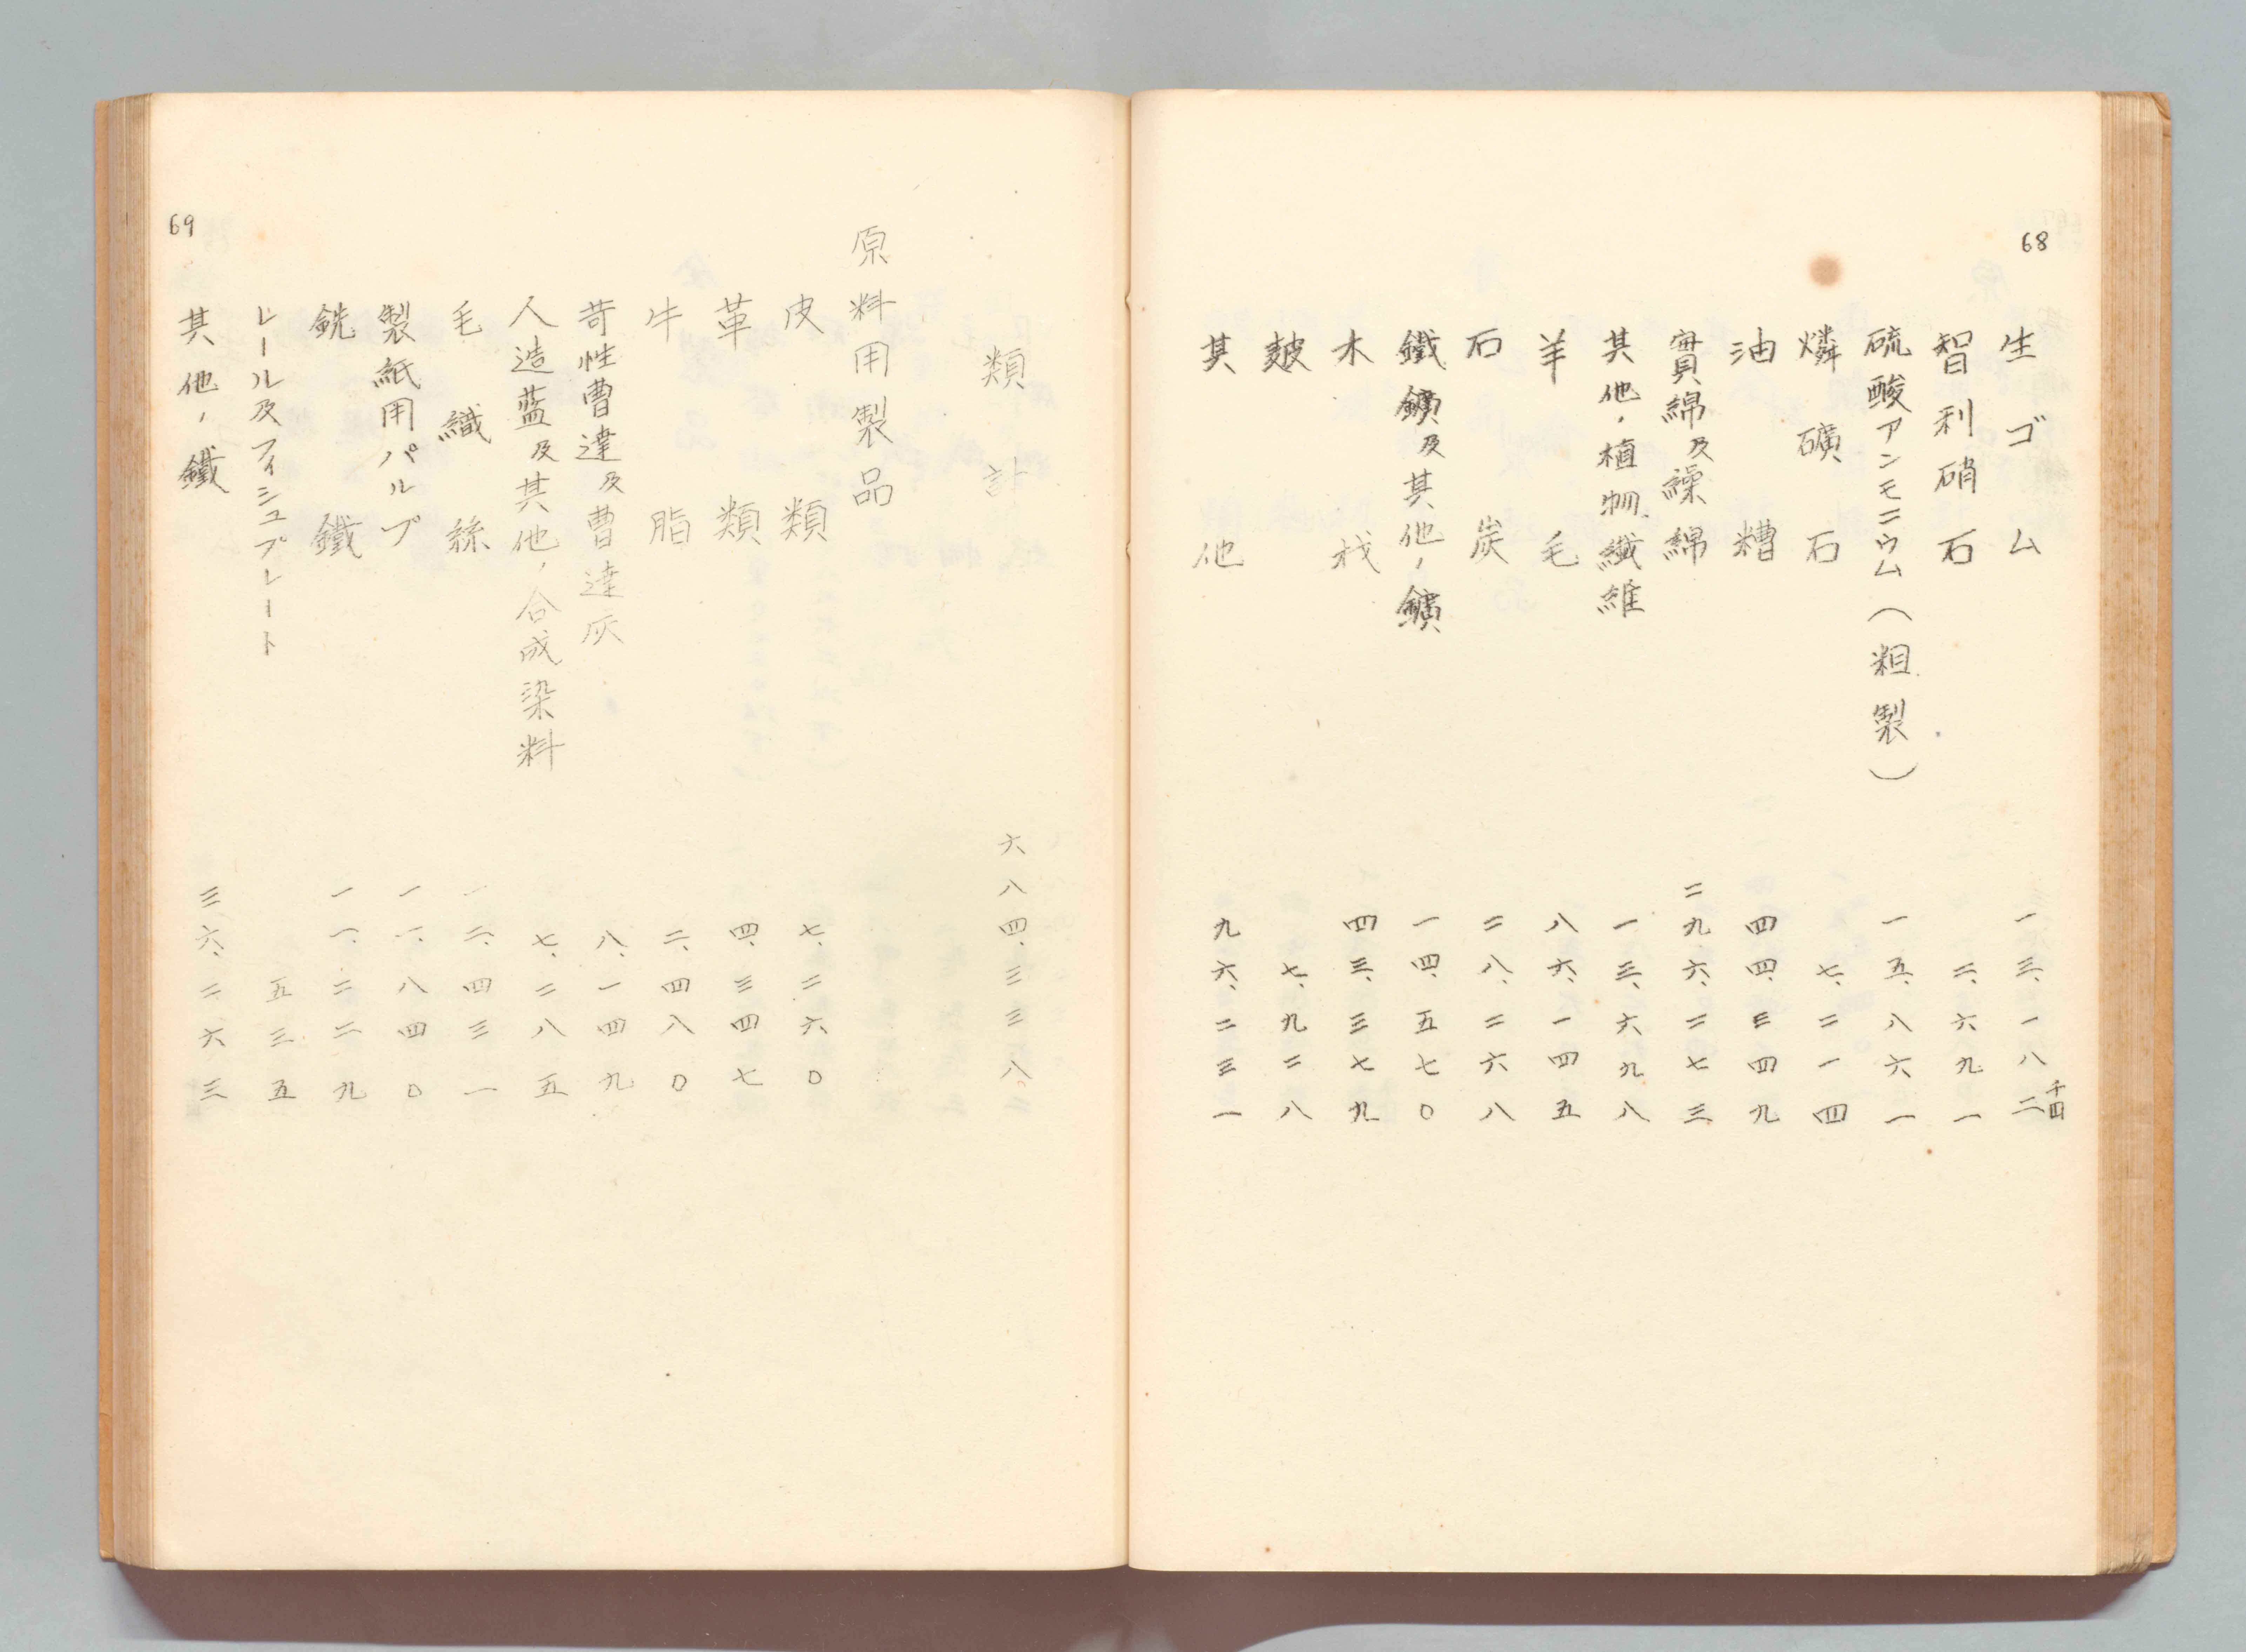 68
千円
生ゴム 一三、一八二
智利硝石 二、六九一
硫酸アンモニウム（粗製） 一五、八六一
燐礦石 七、二一四
油糟 四四、三四九
實綿及繰綿 二九六、二七三
其他ノ植物纖維 一三、六九八
羊毛 八六、一四五
石炭 二八、二六八
鐵鑛及其他ノ鑛 一四、五七〇
木材 四三、三七九
麬 七、九二八
其他 九六、二三一
類計 六八四、三三八
原料用製品
皮類 七、二六〇
革類 四、三四七
牛脂 二、四八〇
苛性曹達及曹達灰 八、一四九
人造藍及其他ノ合成染料 七、二八五
毛織絲 一二、四三一
製紙用パルプ 一一、八四〇
銑鐵 一一、二二九
レール及フィシュプレート 五三五
其他ノ鐵 三六、二六三
69